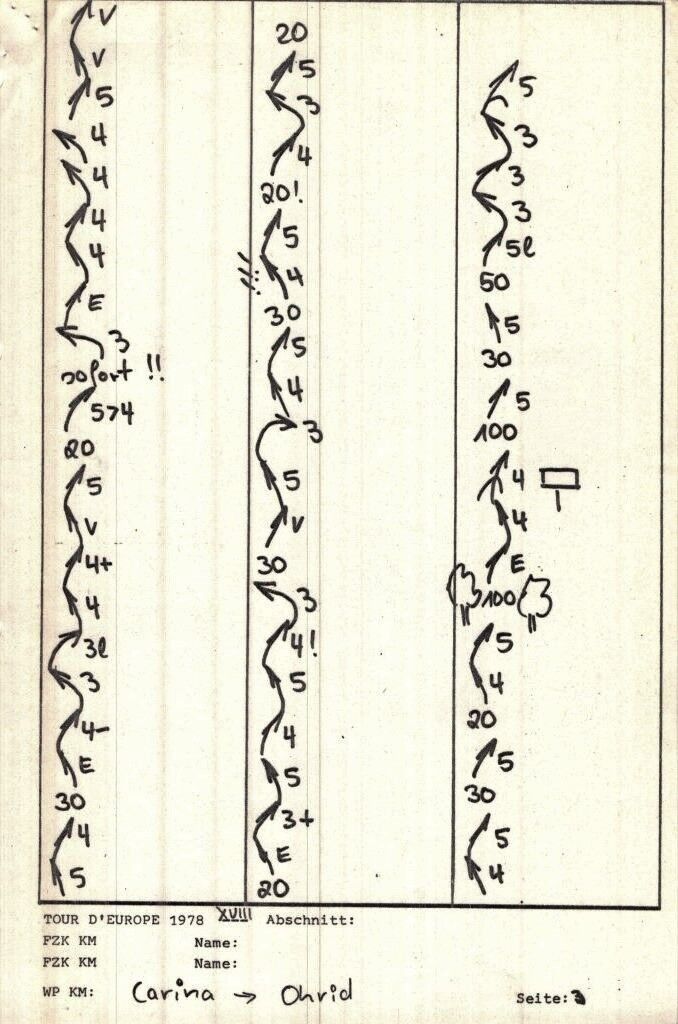 V
V
5
4
4
4
4
E
3
sofort !!
5>4
20
5
V
4+
4
3l
3
4-
E
30
4
5
20
5
3
4
20!
5
4
30
5
4
3
5
V
30
3
4!
5
4
5
3+
E
20
5
3
3
3
5l
50
5
30
5
100
4
4
E
100
5
4
20
5
30
5
4
TOUR D'EUROPE 1978 XVIII Abschnitt:
FZK KM Name:
FZK KM Name:
WP KM: Carina → Ohrid Seite: 3